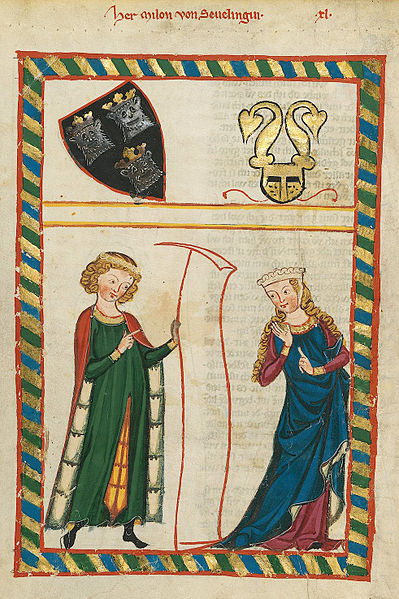 Her Milon von Seuelingin· xl·